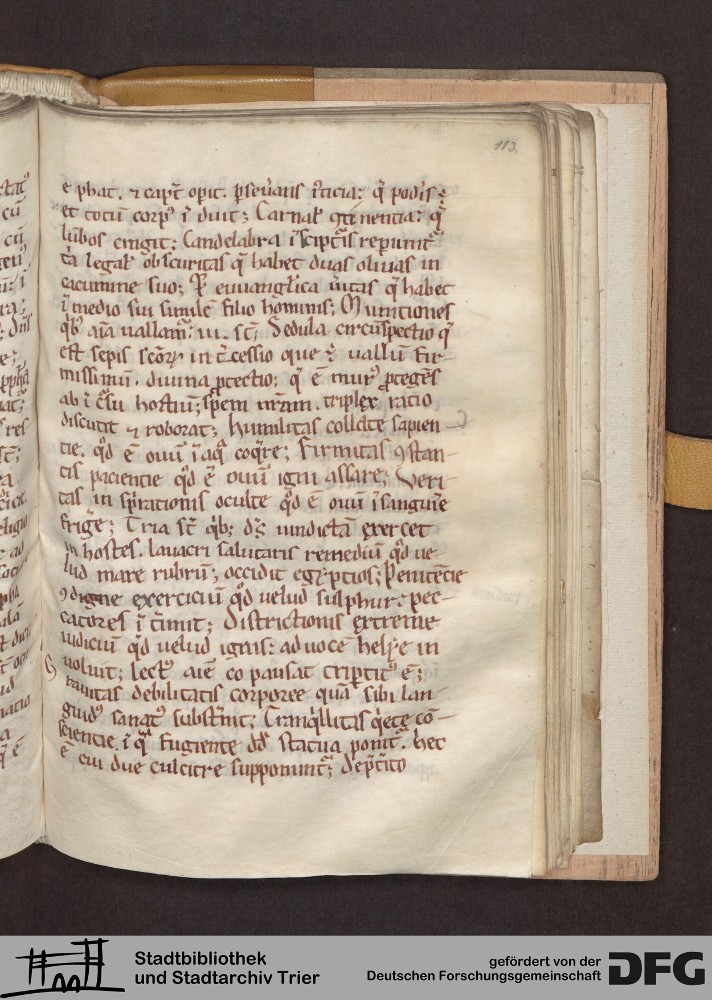 113.
e phat. ⁊ capt̄ opit. ꝑseũans iᷓticia: q̄ podis ꝛ
et totū corpꝰ ī duit; Carnalꝭ ꝯtinentia: q̄
lūbos cingit; Candelabra īscipt̄is reperiunt᷑
legalꝭ obscuritas q̄ habet duas oliuas in
cacumine suo; euuanglica ũitas q̄ habet
ī medio sui similē filio hominis; Munitiones
qͥbꝰ aīa uallat᷑. iii. st̄; Sedula circūspectio q̄
est sepis scōꝝ in cessio que ÷ uallū fir-
missimū. diuina ꝓtectio; q̄ ē murꝰ ꝓtegēs
ab ī hostiū; spem triplex ratio
discutit ⁊ roborat; humilitas collate sapien-
tie. qͦd ē ouū ī aqͣ coqͣre; Firmitas ꝯstan-
tis pacientie qͦd ē ouū igni assare; Veri-
tas in spirationis oculte qͦd ē ouū īsanguīe
frigēe; Tria st̄ qͥbꝫ ds̄ uindictā exercet
in hostes. lauacri salutaris remediū qͦd ue-
lud mare rubrū; occidit egyptios; Penitēcie
ꝯdigne exerciciū qͦd uelud sulphur: pec-
catores ī cīmit; Districtionis extreme
iudiciū qͦd uelud ignis: ad uocē helye in
uoluit; Lectꝰ aīe co pausat triptitꝰ ē;
uitas debilitatis corporee quā sibi lan-
guidꝰ sanatꝰ substnit; Tranqͥllitas qͥete cō-
scientie. ī qͣ fugiente dd̄ statua ponit᷑. hec
ē cui due culcitre supponunt᷑; deptito
Stadtbibliothek
und Stadtarchiv Trier
gefördert von der
Deutschen Forschungsgemeinschaft
DFG